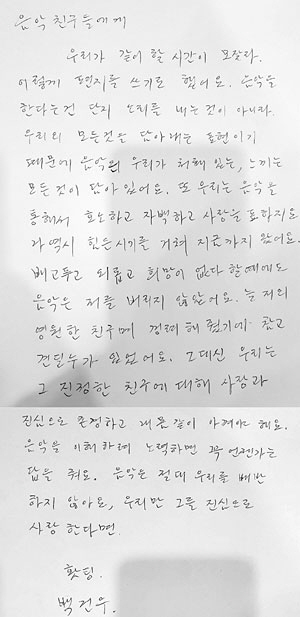 음악 친구들에게
우리가 같이 할 시간이 모잘라.
이렇게 편지를 쓰기로 했어요. 음악을
한다는건 단지 소리를 내는것이 아니라.
우리의 모든것을 담아내는 표현이기
때문에 음악엔 우리가 처해 있는, 느끼는
모든것이 담아 있어요. 또 우리는 음악을
통해서 호소하고 자백하고 사랑을 표하지요
나 역시 힘든시기를 거쳐 지금까지 왔어요.
배고프고 외롭고 희망이 없다 할때에도
음악은 저를 버리지 않았어요. 늘 저의
영원한 친구며 격려해 줬기에 참고
견딜수가 있었어요. 그대신 우리는
그 진정한 친구에 대해 사랑과
진심으로 존경하고 내 몸같이 아껴야 해요.
음악을 이해하려 노력하면 꼭 언젠가는
답을 줘요. 음악은 절대 우리를 배반
하지 않아요, 우리만 그를 진심으로
사랑 한다면.
홧팅.
백건우.